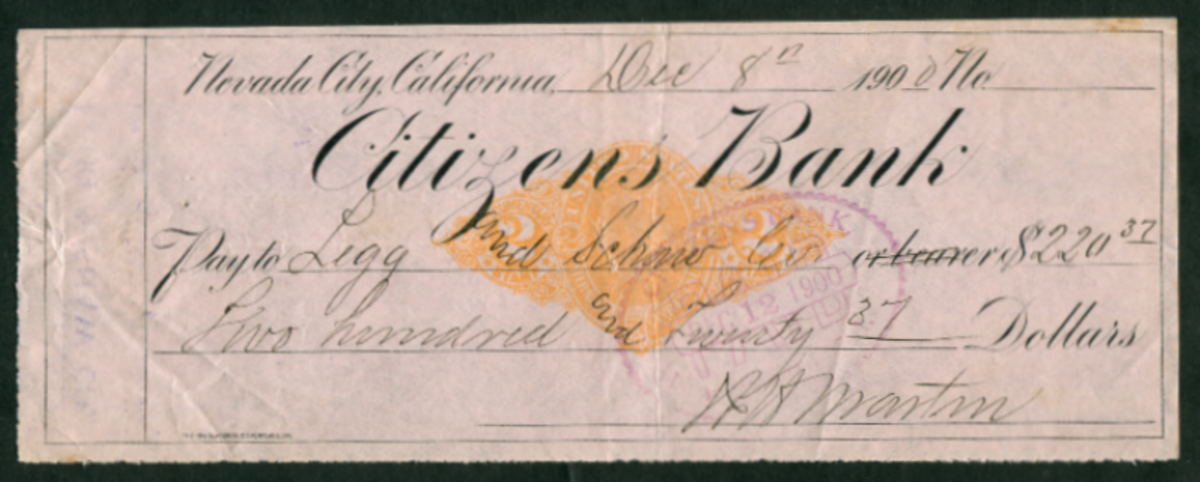 Nevada City, California, Dec 8th 1900 No.
Citizens Bank
Pay to Legg and Schaw Co. or bearer $220 37
Two hundred and Twenty 37 Dollars
Martin
BANK
12 1900